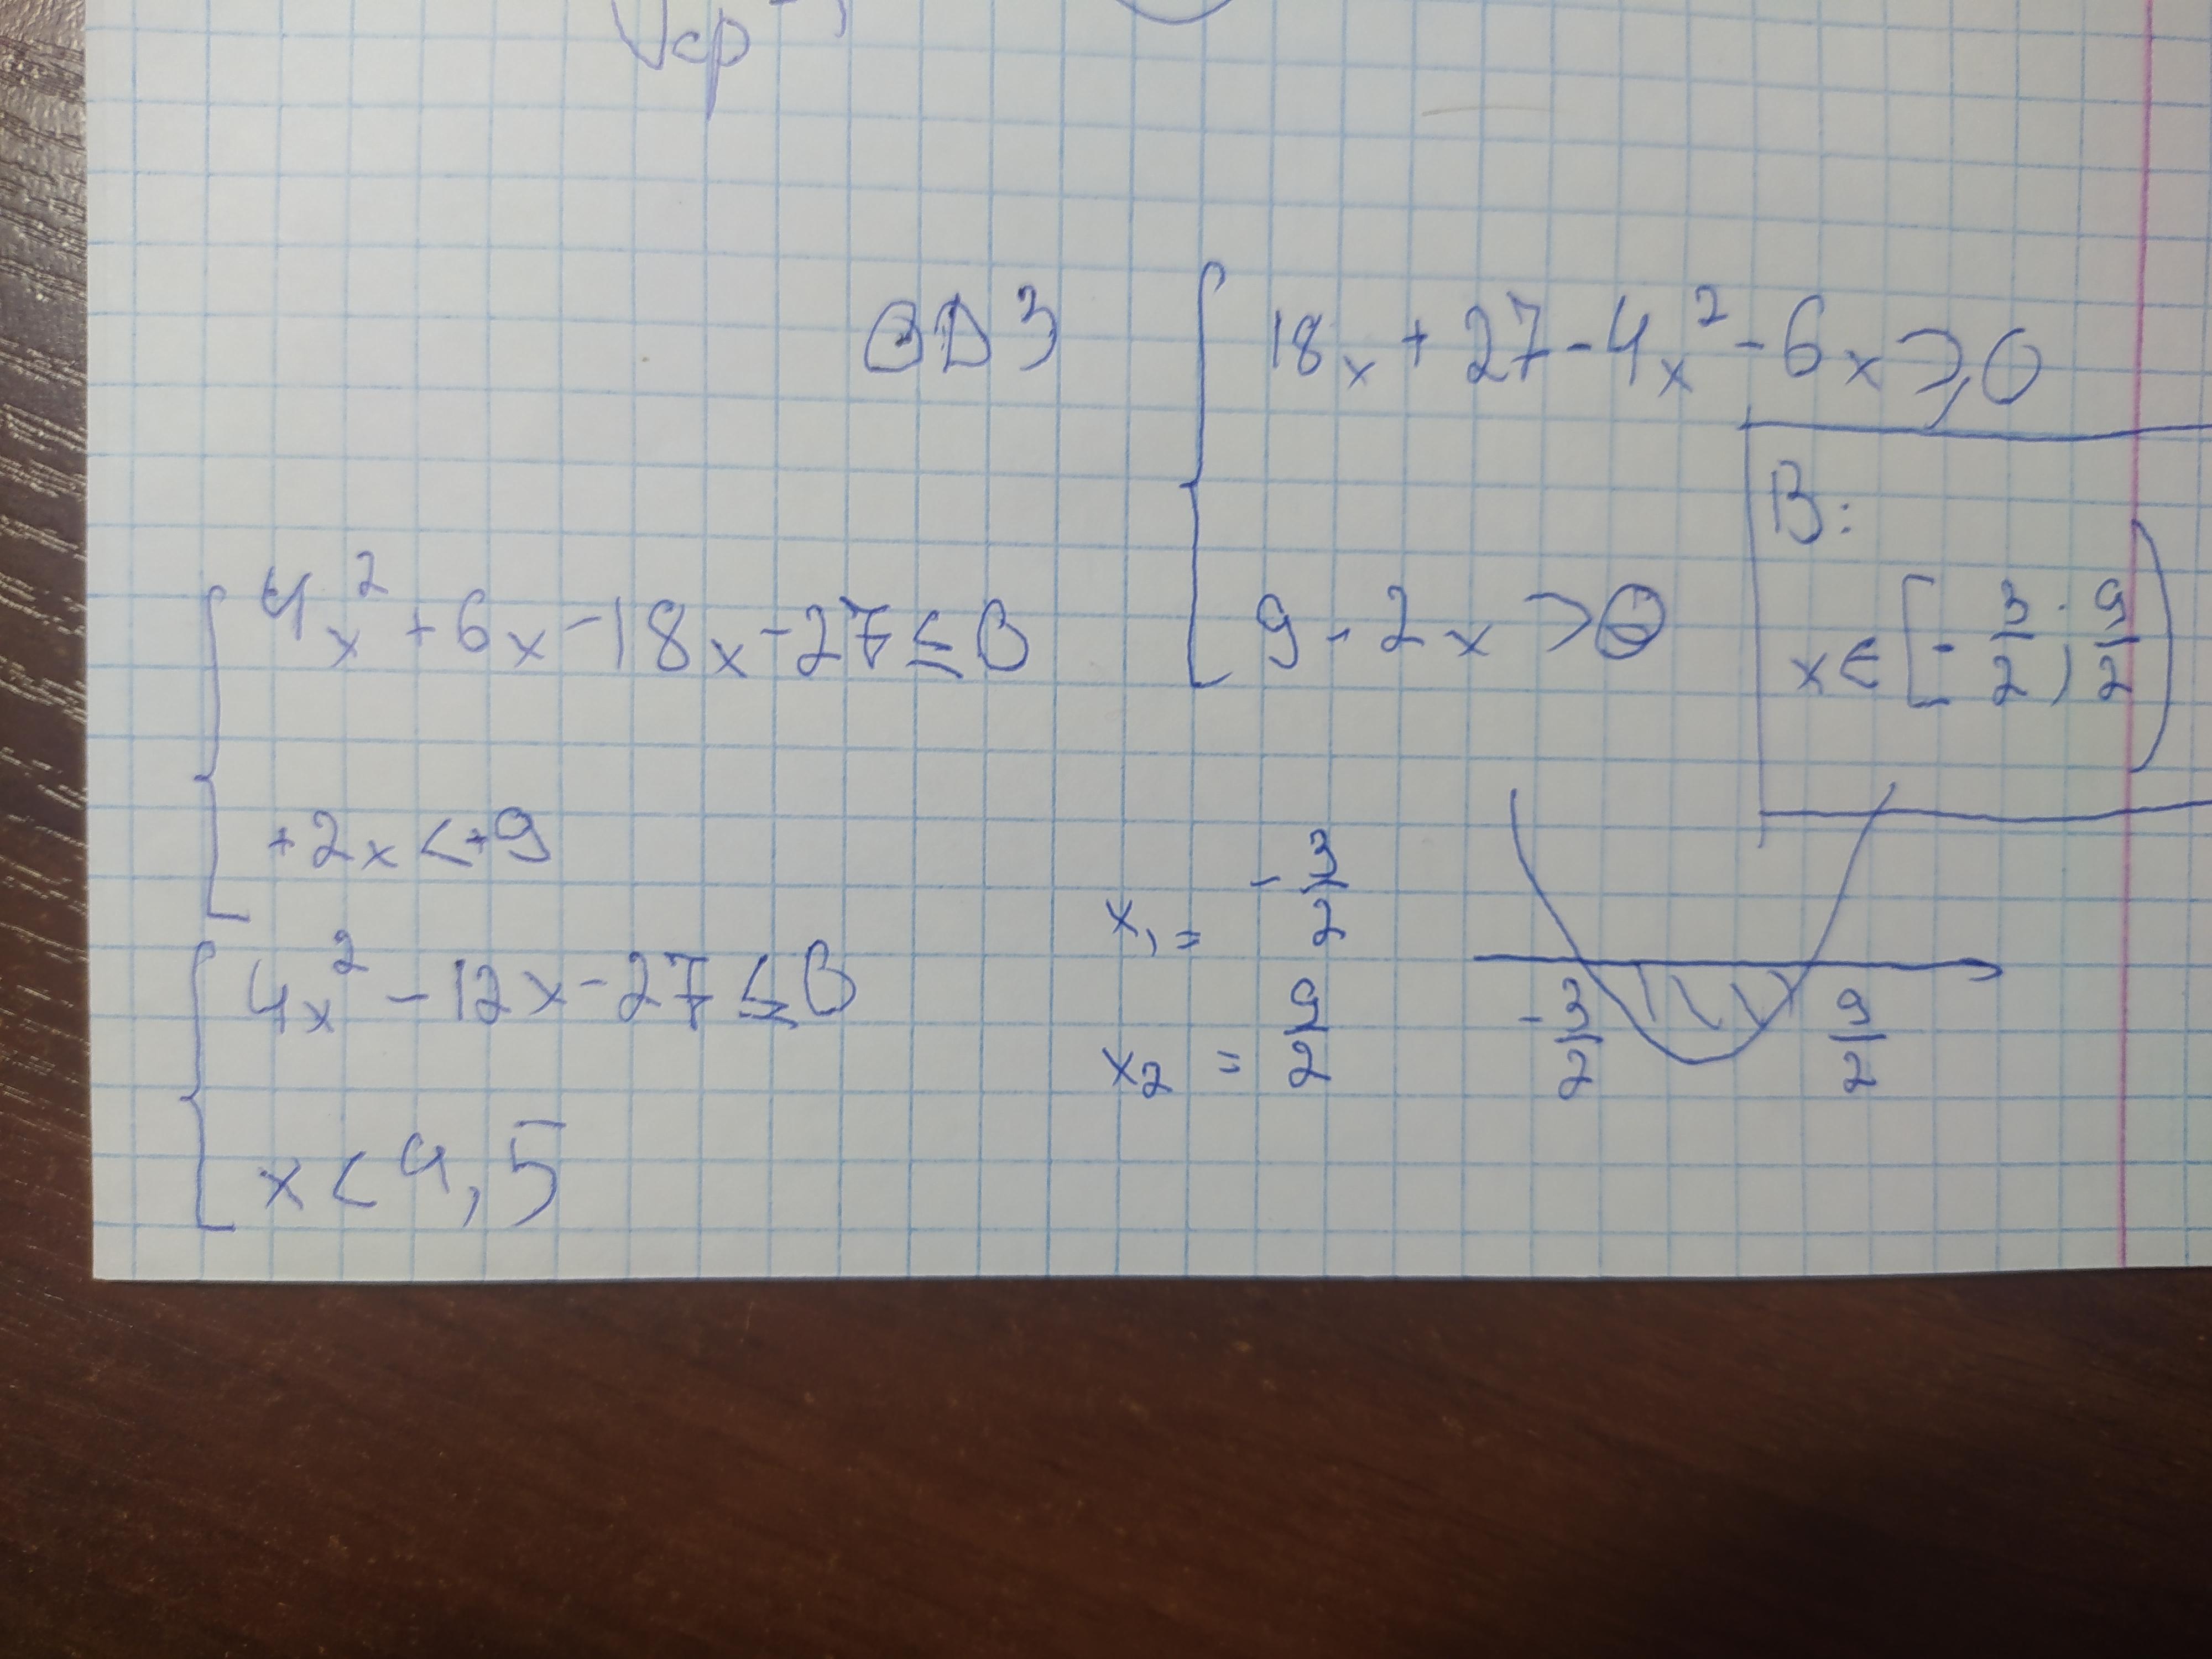 Vср
ОДЗ { 18x + 27 - 4x² - 6x ⩾ 0
9 - 2x > 0
В:
x ∈ [-3/2; 9/2)
{ 4x² + 6x - 18x - 27 ≤ 0
+2x < +9
{ 4x² - 12x - 27 ≤ 0
x < 4,5
x₁ = -3/2
x₂ = 9/2
-3/2 9/2